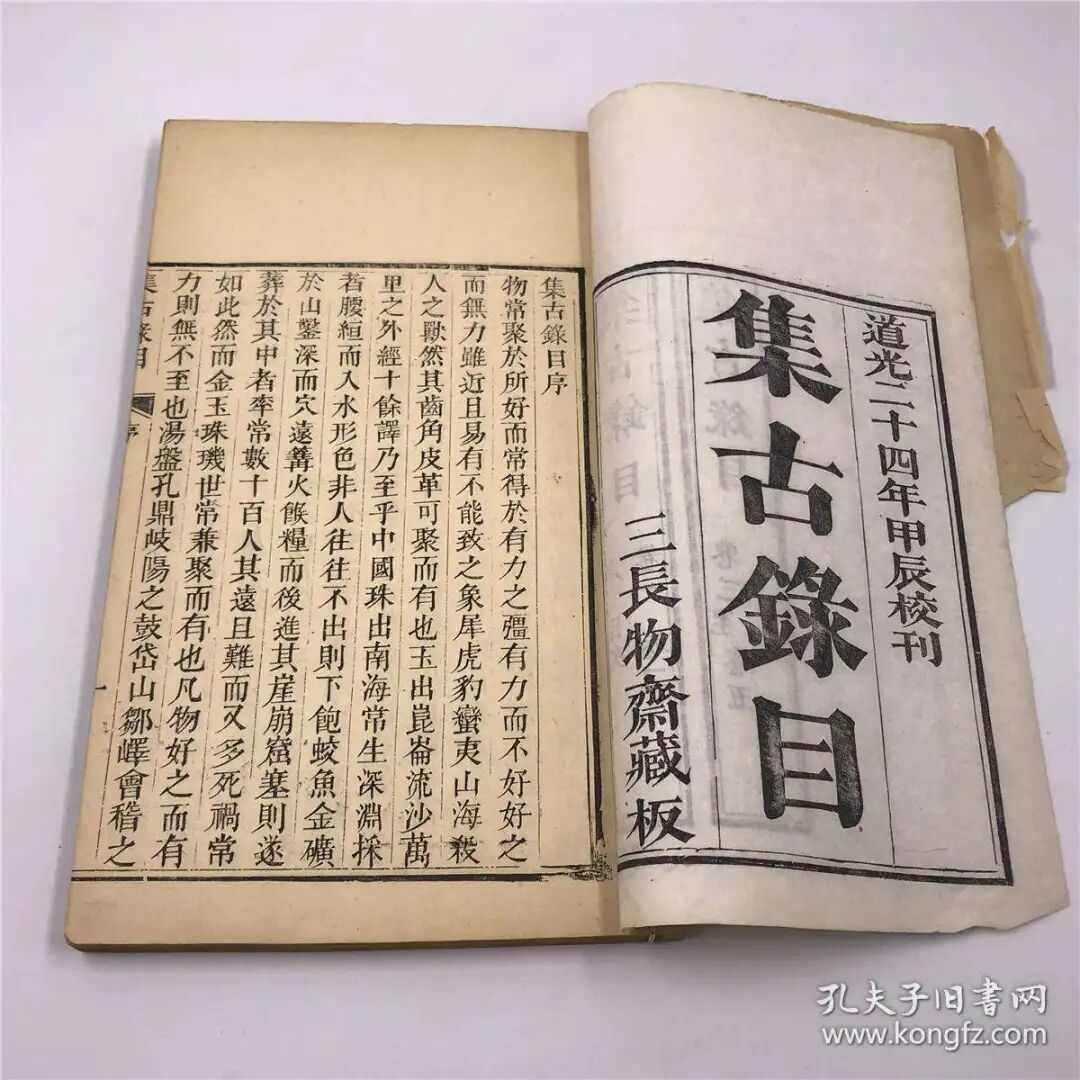 道光二十四年甲辰校刊
集古錄目
三長物齋藏板
集古錄目序
物常聚於所好而常得於有力之彊有力而不好好之
而無力雖近且易有不能致之象犀虎豹蠻夷山海殺
人之獸然其齒角皮革可聚而有也玉出崑崙流沙萬
里之外經十餘譯乃至乎中國珠出南海常生深淵採
者腰絙而入水形色非人往往不出則下飽蛟魚金礦
於山鑿深而穴遠篝火餱糧而後進其崖崩窟塞則遂
葬於其中者率常數十百人其遠且難而又多死禍常
如此然而金玉珠璣世常兼聚而有也凡物好之而有
力則無不至也湯盤孔鼎岐陽之鼓岱山鄒嶧會稽之
集古錄目
序
一
孔夫子旧书网
www.kongfz.com